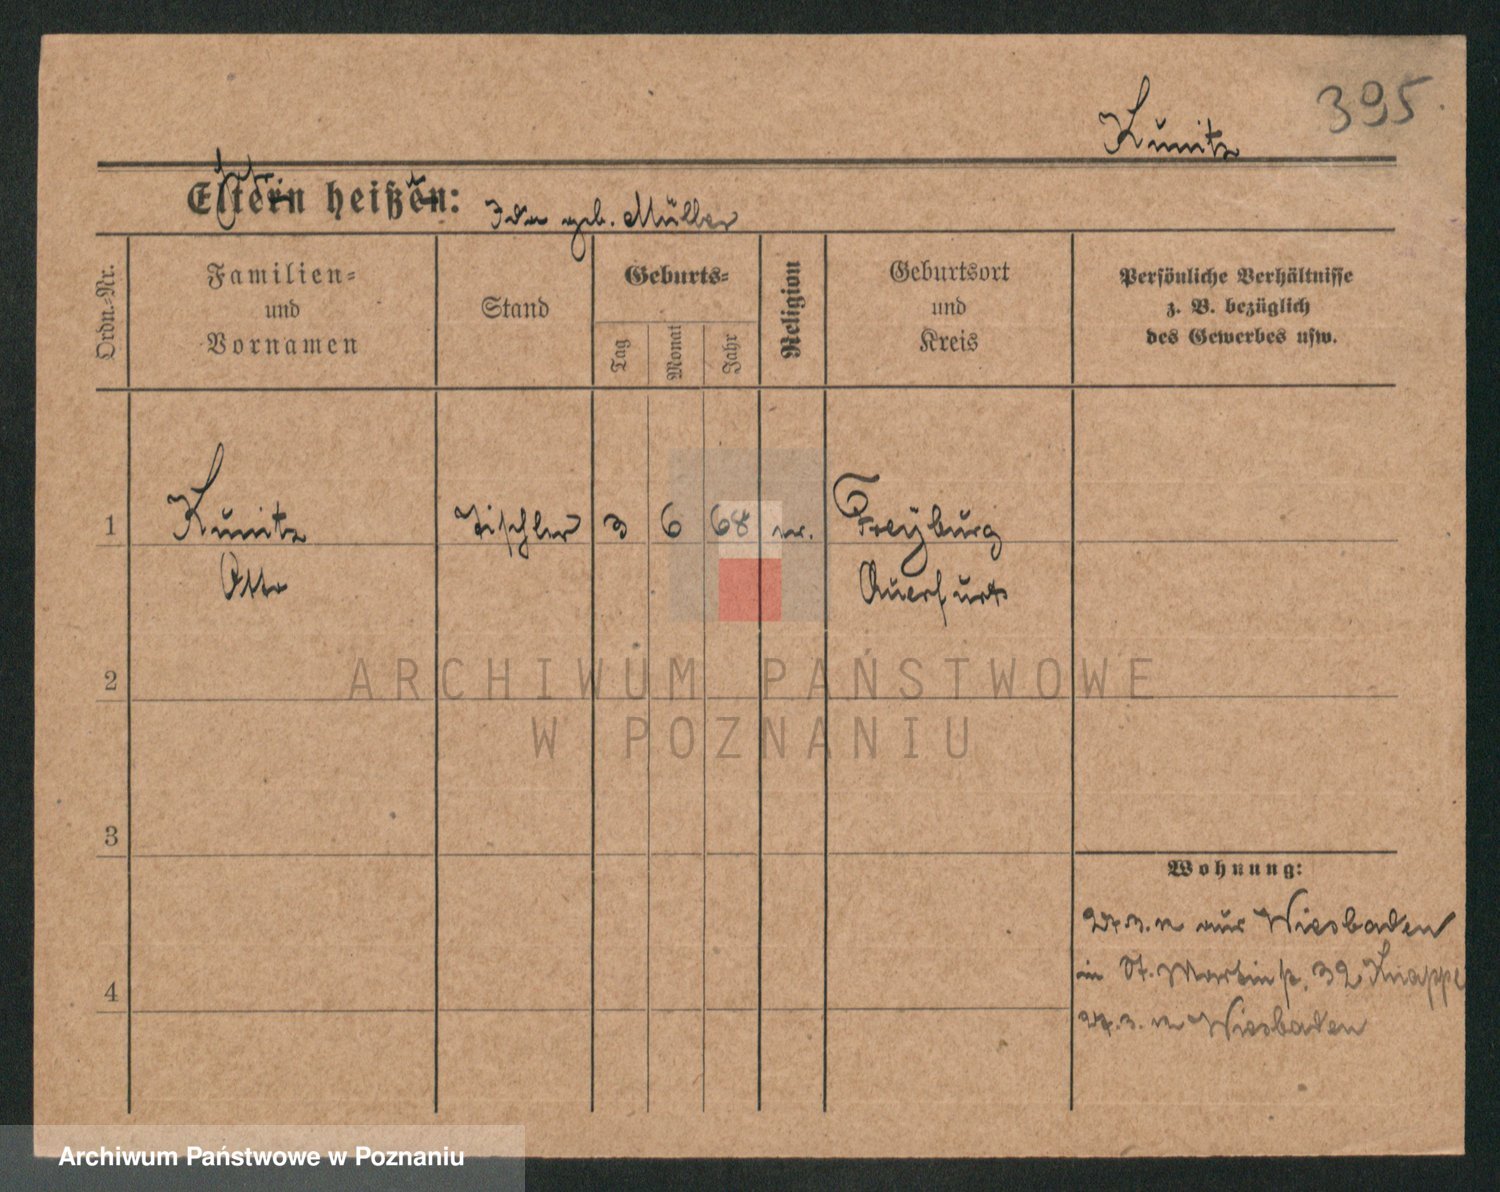 395
Kunitz
Eltern heißen: Ida geb. Müller
Ordn.-Nr.
Familien-
und
Vornamen
Stand
Geburts-
Tag
Monat
Jahr
Religion
Geburtsort
und
Kreis
Persönliche Verhältnisse
z. B. bezüglich
des Gewerbes usw.
1 Kunitz Tischler 3 6 68 ev. Freyburg
Otto Querfurt
2
3
Wohnung:
aus Wiesbaden
in St. Martinstr. 32 Knappe
4
Wiesbaden
ARCHIWUM PAŃSTWOWE
W POZNANIU
Archiwum Państwowe w Poznaniu